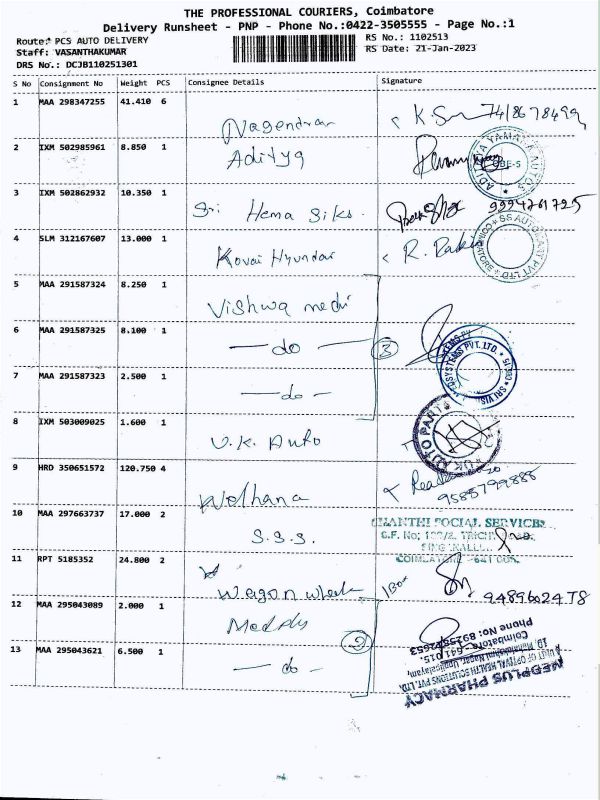 THE PROFESSIONAL COURIERS, Coimbatore
Delivery Runsheet - PNP - Phone No.:0422-3505555 - Page No.:1
Route: PCS AUTO DELIVERY
RS No.: 1102513
Staff: VASANTHAKUMAR
RS Date: 21-Jan-2023
DRS No.: DCJB110251301
S No Consignment No Weight PCS Consignee Details Signature
1 MAA 298347255 41.410 6
Nagendran K.
2 IXM 502985961 8.850 1
Aditya
ADITYA YAMAHA AUTOS
CBE-5
3 IXM 502862932 10.350 1
Sri Hema Siks. 9994761725
4 SLM 312167607 13.000 1
Kovai Hyundai R.
SS AUTOMART PVT LTD COIMBATORE
5 MAA 291587324 8.250 1
Vishwa medi
6 MAA 291587325 8.100 1
— do — 3
SYSTEMS PVT. LTD.
7 MAA 291587323 2.500 1
— do —
8 IXM 503009025 1.600 1
U.K. Auto
UK AUTO PARTS
9 HRD 350651572 120.750 4
Wolhana 9588799888
10 MAA 297663737 17.000 2
S.S.S.
SHANTHI SOCIAL SERVICES
COIMBATORE - 641 005.
11 RPT 5185352 24.800 2
Wagon wheels 1 Box
12 MAA 295043089 2.000 1
Medply
13 MAA 295043621 6.500 1
— do — 2
MEDPLUS PHARMACY
A UNIT OF OPTIVAL HEALTH SOLUTIONS PVT. LTD.
Coimbatore - 641 015.